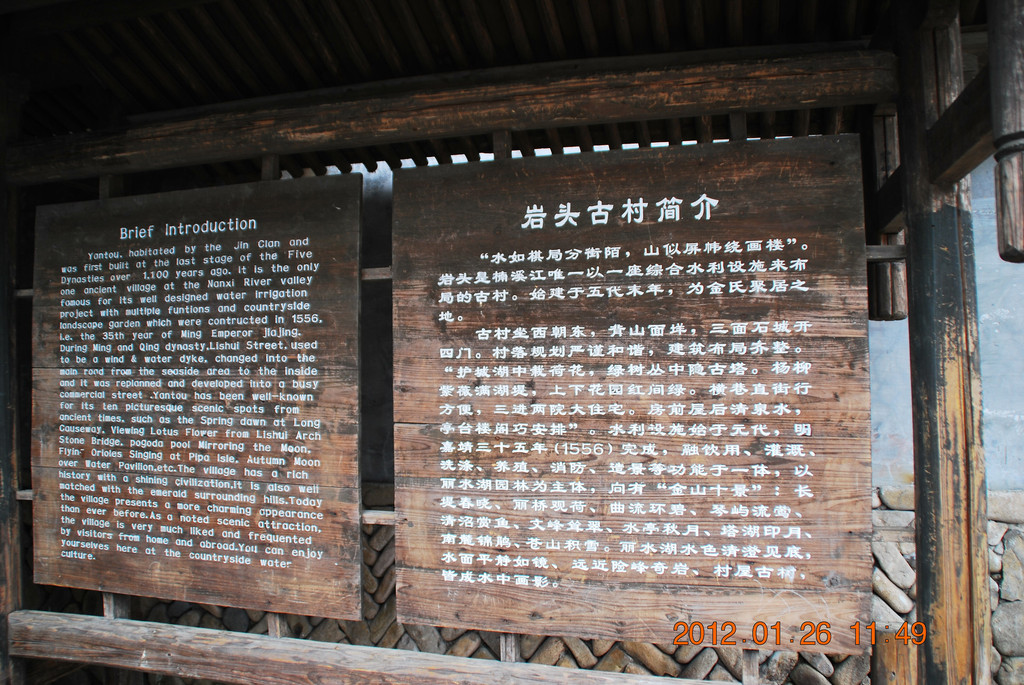 Brief Introduction
Yantou, habitated by the Jin Clan and
was first built at the last stage of the Five
Dynasties over 1,100 years ago. It is the only
one ancient village at the Nanxi River valley
famous for its well designed water irrigation
project with multiple funtions and countryside
landscape garden which were contructed in 1556,
i.e. the 35th year of Ming Emperor Jiajing.
During Ming and Qing dynasty,Lishui Street, used
to be a wind & water dyke, changed into the
main road from the seaside area to the inside
and it was replanned and developed into a busy
commercial street .Yantou has been well-known
for its ten picturesque scenic spots from
ancient times, such as the Spring dawn at Long
Causeway, Viewing Lotus Flower from Lishui Arch
Stone Bridge, pogoda pool Mirroring the Moon,
Flyin- Orioles Singing at Pipa Isle, Autumn Moon
over Water Pavilion,etc.The village has a rich
history with a shining civilization.It is also well
matched with the emerald surrounding hills.Today
the village presents a more charming appearance
than ever before.As a noted scenic attraction,
the village is very much liked and frequented
by visitors from home and abroad.You can enjoy
yourselves here at the countryside water
culture.
岩头古村简介
“水如棋局分街陌，山似屏帏绕画楼”。
岩头是楠溪江唯一以一座综合水利设施来布
局的古村。始建于五代末年，为金氏聚居之
地。
古村坐西朝东，背山面垟，三面石城开
四门。村落规划严谨和谐，建筑布局齐整。
“护城湖中栽荷花，绿树丛中隐古塔。杨柳
紫薇满湖堤，上下花园红间绿。横巷直街行
方便，三进两院大住宅。房前屋后清泉水，
亭台楼阁巧安排”。水利设施始于元代，明
嘉靖三十五年(1556)完成，融饮用、灌溉、
洗涤、养殖、消防、造景等功能于一体，以
丽水湖园林为主体，向有“金山十景”：长
堤春晓、丽桥观荷、曲流环碧、琴屿流莺、
清沼赏鱼、文峰耸翠、水亭秋月、塔湖印月、
南麓锦鹃、苍山积雪。丽水湖水色清澄见底，
水面平静如镜、远近险峰奇岩、村屋古树、
皆成水中画影。
2012.01.26 11:49